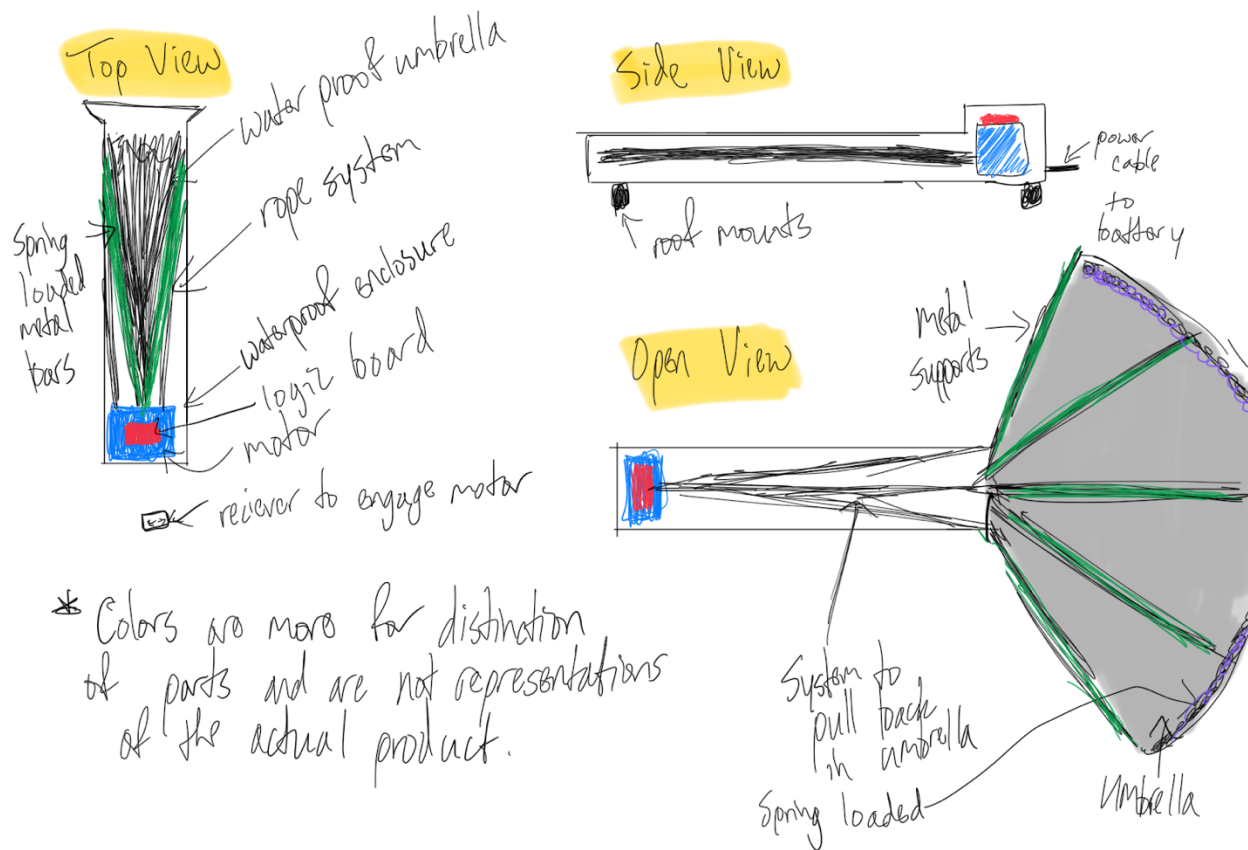 Top View
water proof umbrella
rope system
Spring
loaded
metal
bars
waterproof enclosure
logic board
motor
reciever to engage motor
* Colors are more for distinction
of parts and are not representations
of the actual product.
Side View
power
cable
to
battery
roof mounts
Open View
metal
supports
System to
pull back
in umbrella
Spring loaded
Umbrella